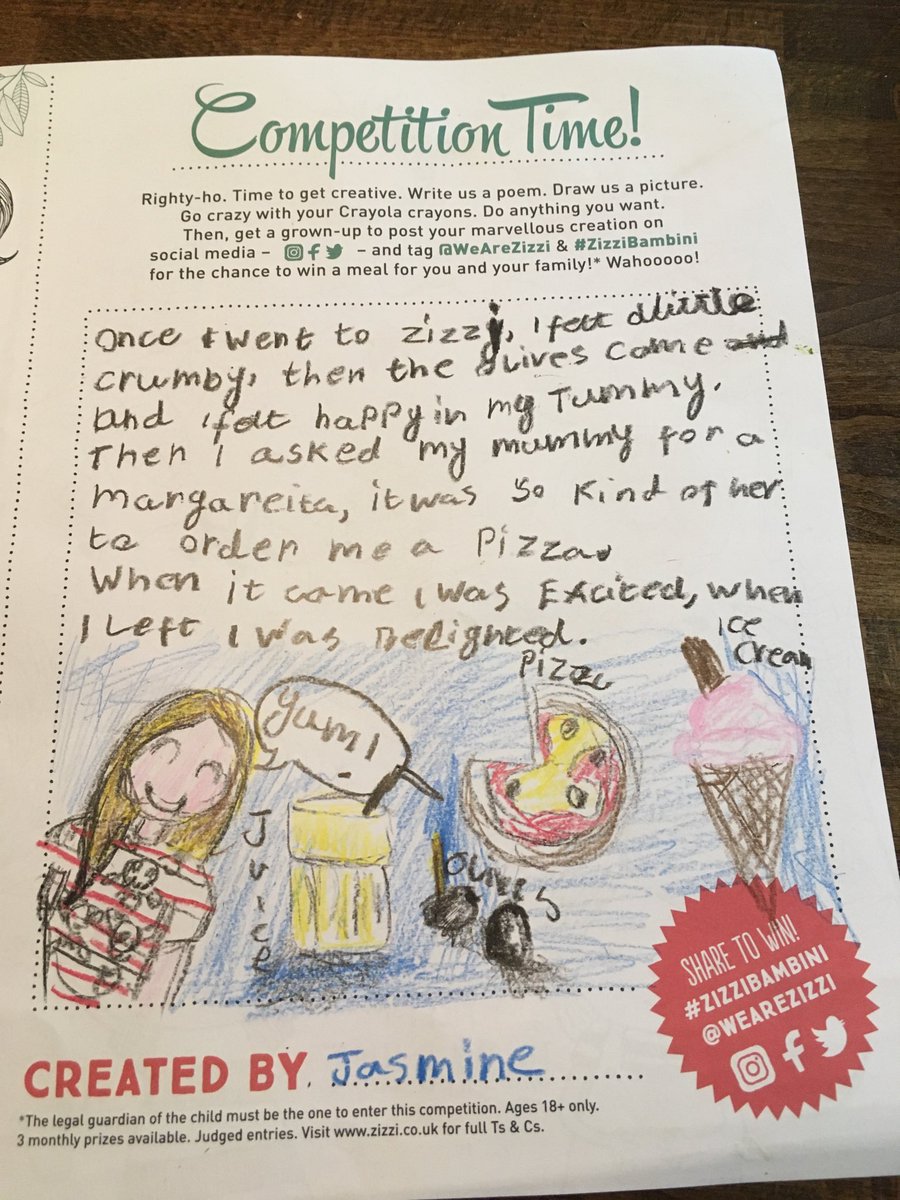 Competition Time!
Righty-ho. Time to get creative. Write us a poem. Draw us a picture.
Go crazy with your Crayola crayons. Do anything you want.
Then, get a grown-up to post your marvellous creation on
social media – – and tag @WeAreZizzi & #ZizziBambini
for the chance to win a meal for you and your family!* Wahooooo!
Once I went to Zizzi, I felt a little
crumby, then the olives came and
and I felt happy in my Tummy.
Then I asked my mummy for a
margareita, it was so kind of her
to orden me a Pizza.
When it came I was Excited, when
I Left I was Delighted.
Yum!
Juice
Olives
Pizza
Ice
Cream
SHARE TO WIN!
#ZIZZIBAMBINI
@WEAREZIZZI
CREATED BY Jasmine
*The legal guardian of the child must be the one to enter this competition. Ages 18+ only.
3 monthly prizes available. Judged entries. Visit www.zizzi.co.uk for full Ts & Cs.